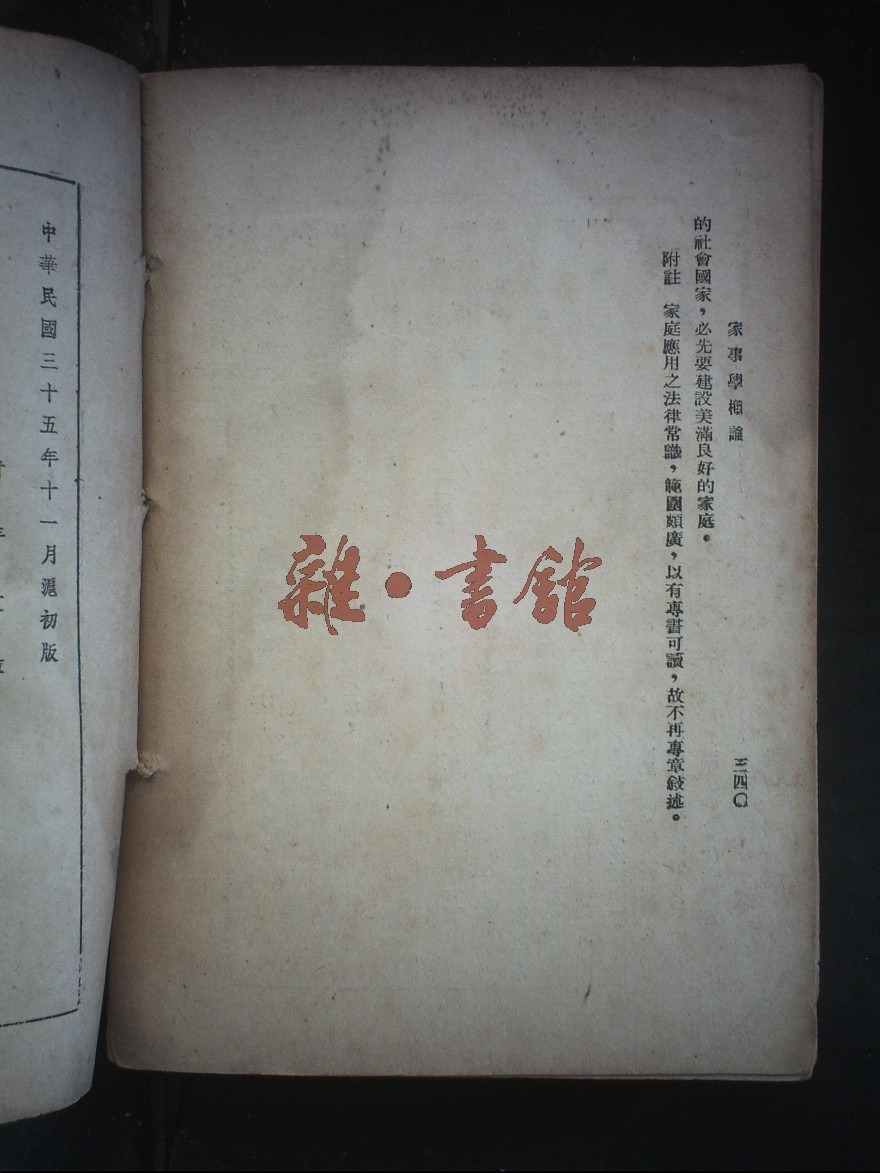 家事學概論
三四〇
的社會國家，必先要建設美滿良好的家庭。
附註　家庭應用之法律常識，範圍頗廣，以有專書可讀，故不再專章敍述。
雜·書館
中華民國三十五年十一月滬初版